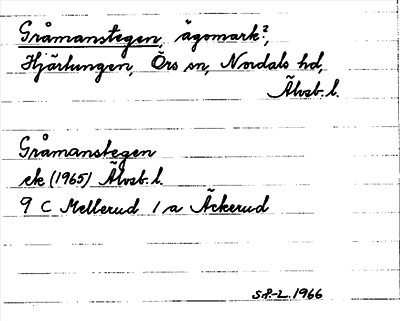 Gråmanstegen, ägomark?,
Hjärtungen, Örs sn, Nordals hd,
Älvsb. l.
Gråmanstegen
ek (1965) Älvsb. l.
9 C Mellerud 1 a Äckerud
S.P.-L. 1966